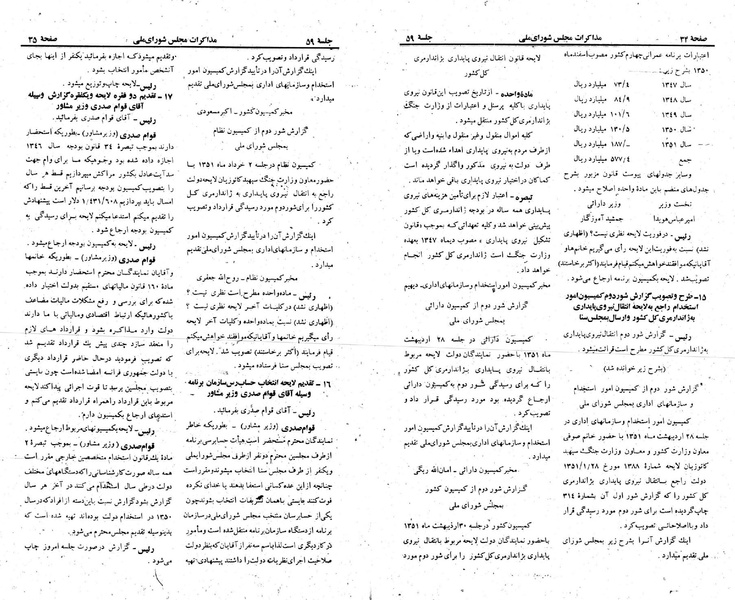 صفحهٔ ۳۴ مذاکرات مجلس شورای ملی جلسهٔ ۵۹
اعتبارات برنامه عمرانی چهارم کشور مصوب اسفندماه
۱۳۵۰ بشرح زیر:
سال ۱۳۴۷ ۷۳/۴ میلیارد ریال
سال ۱۳۴۸ ۸۴/۹ میلیارد ریال
سال ۱۳۴۹ ۱۰۱/۶ میلیارد ریال
سال ۱۳۵۰ ۱۳۰/۵ میلیارد ریال
سال ۱۳۵۱ ۱۸۷/- میلیارد ریال
جمع ۵۷۷/۴ میلیارد ریال
وسایر جدولهای پیوست قانون مزبور بشرح
جدول‌های منضم باین ماده واحده اصلاح میشود.
نخست وزیر وزیر دارائی
امیرعباس هویدا جمشید آموزگار
رئیس- در فوریت لایحه نظری نیست؟ (اظهاری
نشد) نسبت به فوریت این لایحه رأی می‌گیریم خانم‌ها و
آقایانیکه موافقند خواهش میکنم قیام فرمایند (اکثر برخاستند)
تصویب شد. لایحه بکمیسیون برنامه ارجاع می‌شود.
۱۵- طرح و تصویب گزارش شور دوم کمیسیون امور
استخدام راجع به لایحه انتقال نیروی پایداری
به ژاندارمری کل کشور و ارسال بمجلس سنا
رئیس- گزارش شور دوم انتقال نیروی پایداری
به ژاندارمری کل کشور مطرح است قرائت میشود.
(بشرح زیر خوانده شد)
گزارش شور دوم از کمیسیون امور استخدام
و سازمانهای اداری بمجلس شورای ملی
کمیسیون امور استخدام و سازمانهای اداری در
جلسه ۲۸ اردیبهشت ماه ۱۳۵۱ با حضور خانم صوفی
معاون وزارت کشور و معاون وزارت جنگ سپهبد
کاتوزیان لایحه شمارهٔ ۱۳۸۸ مورخ ۱۳۵۱/۱/۲۸
دولت راجع به انتقال نیروی پایداری بژاندارمری
کل کشور را که گزارش شور اول آن بشمارهٔ ۳۱۴
چاپ گردیده است برای شور دوم مورد رسیدگی قرار
داد و با اصلاحاتی تصویب کرد.
اینک گزارش آنرا بشرح زیر بمجلس شورای
ملی تقدیم میدارد.
لایحه قانون انتقال نیروی پایداری بژاندارمری
کل کشور
مادهٔ واحده - از تاریخ تصویب این قانون نیروی
پایداری با کلیه پرسنل و اعتبارات از وزارت جنگ
بژاندارمری کل کشور منتقل میشود.
کلیه اموال منقول و غیر منقول و ابنیه و اراضی که
از طرف مردم به نیروی پایداری اهداء شده است و یا
طرف دولت به نیروی مذکور واگذار گردیده است
کماکان در اختیار نیروی پایداری باقی خواهد ماند.
تبصره - اعتبار لازم برای تأمین هزینه‌های نیروی
پایداری همه ساله در بودجه ژاندارمری کل کشور
پیش‌بینی خواهد شد و کلیه تعهداتی که بموجب «قانون
تشکیل نیروی پایداری، مصوب دیماه ۱۳۴۷ بعهده
وزارت جنگ است ژاندارمری کل کشور انجام
خواهد داد.
مخبر کمیسیون امور استخدام و سازمانهای اداری - دیهیم
گزارش شور دوم از کمیسیون دارائی
بمجلس شورای ملی
کمیسیون دارائی در جلسه ۲۸ اردیبهشت
ماه ۱۳۵۱ با حضور نمایندگان دولت لایحه مربوط
به انتقال نیروی پایداری بژاندارمری کل کشور
را که برای رسیدگی شور دوم به کمیسیون دارائی
ارجاع گردیده بود مورد رسیدگی قرار داد و
تصویب کرد.
اینک گزارش آن را در تأیید گزارش کمیسیون امور
استخدام و سازمانهای اداری بمجلس شورای ملی تقدیم
میدارد.
مخبر کمیسیون دارائی - امان‌الله ریگی
گزارش شور دوم از کمیسیون کشور
بمجلس شورای ملی
کمیسیون کشور در جلسه ۳۰ اردیبهشت ماه ۱۳۵۱
با حضور نمایندگان دولت لایحه مربوط به انتقال نیروی
پایداری بژاندارمری کل کشور را برای شور دوم مورد
جلسهٔ ۵۹ مذاکرات مجلس شورای ملی صفحهٔ ۳۵
رسیدگی قرارداد و تصویب کرد.
اینک گزارش آن را در تأیید گزارش کمیسیون امور
استخدام و سازمانهای اداری بمجلس شورای ملی تقدیم
میدارد.
مخبر کمیسیون کشور - اکبر مسعودی
گزارش شور دوم از کمیسیون نظام
بمجلس شورای ملی
کمیسیون نظام در جلسه ۲ خرداد ماه ۱۳۵۱ با
حضور معاون وزارت جنگ سپهبد کاتوزیان لایحه دولت
راجع به انتقال نیروی پایداری به ژاندارمری کل
کشور را برای شور دوم مورد رسیدگی قرارداد و تصویب
کرد.
اینک گزارش آن را در تأیید گزارش کمیسیون امور
استخدام و سازمانهای اداری بمجلس شورای ملی تقدیم
میدارد.
مخبر کمیسیون نظام - روح‌الله جعفری
رئیس - ماده واحده مطرح است. نظری نیست؟
(اظهاری نشد) در کلیات آخر لایحه نظری نیست؟
(اظهاری نشد) نسبت به ماده واحده و کلیات آخر لایحه
رأی میگیریم خانمها و آقایانیکه موافقند خواهش میکنم
قیام فرمایند (اکثر برخاستند) تصویب شد. لایحه برای
مجلس سنا فرستاده میشود.
۱۶ - تقدیم لایحه انتخاب حسابرس سازمان برنامه
وسیله آقای قوام صدری وزیر مشاور
رئیس - آقای قوام صدری بفرمائید.
قوام صدری (وزیر مشاور) - بطوریکه خاطر
نمایندگان محترم مستحضر است هیأت حسابرسی برنامه
از طرف مجلسین محترم دو نفر از طرف مجلس شورای ملی
و یکنفر از طرف مجلس سنا انتخاب میشوند و مقرر است
چنانچه از این عده کسانی استعفا بدهند یا خدای نکرده
فوت کنند بایستی بهمان تشریفات انتخاب بشوند چون
یکی از حسابرسان منتخب مجلس شورای ملی در سازمان
برنامه از دستگاه سازمان برنامه منتقل شده است و مأمور
در کار دیگری است لذا باسم سه نفر از آقایان که بنظر دولت
صلاحیت این کار نظریات دولت را داشتند پیشنهادی تهیه
و تقدیم میشود که اجازه بفرمائید یکنفر از اینها بجای
آنشخص مأمور انتخاب بشود.
رئیس - لایحه چاپ و توزیع میشود.
۱۷ - تقدیم دو فقره لایحه و یکفقره گزارش وسیله
آقای قوام صدری وزیر مشاور
رئیس - آقای قوام صدری بفرمائید.
قوام صدری (وزیر مشاور) - بطوریکه استحضار
دارند بموجب تبصرهٔ ۳۴ قانون بودجه سال ۱۳۴۶
اجازه داده شده بود وجوهیکه ما برای وام جهت
سد آیت عادل بکشور مراکش میپردازیم هر سال قسط
را بتصویب کمیسیون بودجه برسانیم آخرین قسط را که
امسال باید بپردازیم ۱/۴۳۱/۶۰۸ دلار است پیشنهادش
را تقدیم میکنم استدعا میکنم لایحه برای رسیدگی به
کمیسیون بودجه ارجاع شود.
رئیس - لایحه به کمیسیون بودجه ارجاع میشود.
قوام صدری (وزیر مشاور) - بطوریکه خانمها
و آقایان نمایندگان محترم استحضار دارند بموجب
مادهٔ ۱۶۰ قانون مالیاتهای مستقیم بدولت اختیار داده
شده که برای بررسی و رفع مشکلات مالیات مضاعف
با کشورهائیکه ارتباط اقتصادی و مالیاتی با ما دارند
دولت وارد مذاکره بشود و قرارداد های لازم
را منعقد سازد چندی پیش یک قرارداد تقدیم شد
که تصویب فرمودید در حال حاضر قرارداد دیگری
با دولت جمهوری فرانسه امضاء شده است چون بایستی
بتصویب مجلسین برسد تا قوت اجرائی پیدا کند لایحه
مربوط باین قرارداد را همراه قرارداد تقدیم می‌کنم و
استدعای ارجاع بکمیسیون دارم.
رئیس - لایحه بکمیسیونهای مربوط ارجاع میشود.
قوام صدری (وزیر مشاور) - بموجب تبصرهٔ ۲
مادهٔ یک قانون استخدام متخصصین خارجی مقرر است
همه ساله صورت کارشناسانی را که دستگاههای مختلف
دولت در طی سال استخدام می کنند در آخر هر سال
گزارش بشود گزارش نسبت باین دسته از افراد که در سال
۱۳۵۰ در استخدام دولت بوده‌اند تهیه شده است که
بدینوسیله تقدیم مجلس محترم می‌شود.
رئیس - گزارش در صورت جلسه امروز چاپ
می شود.